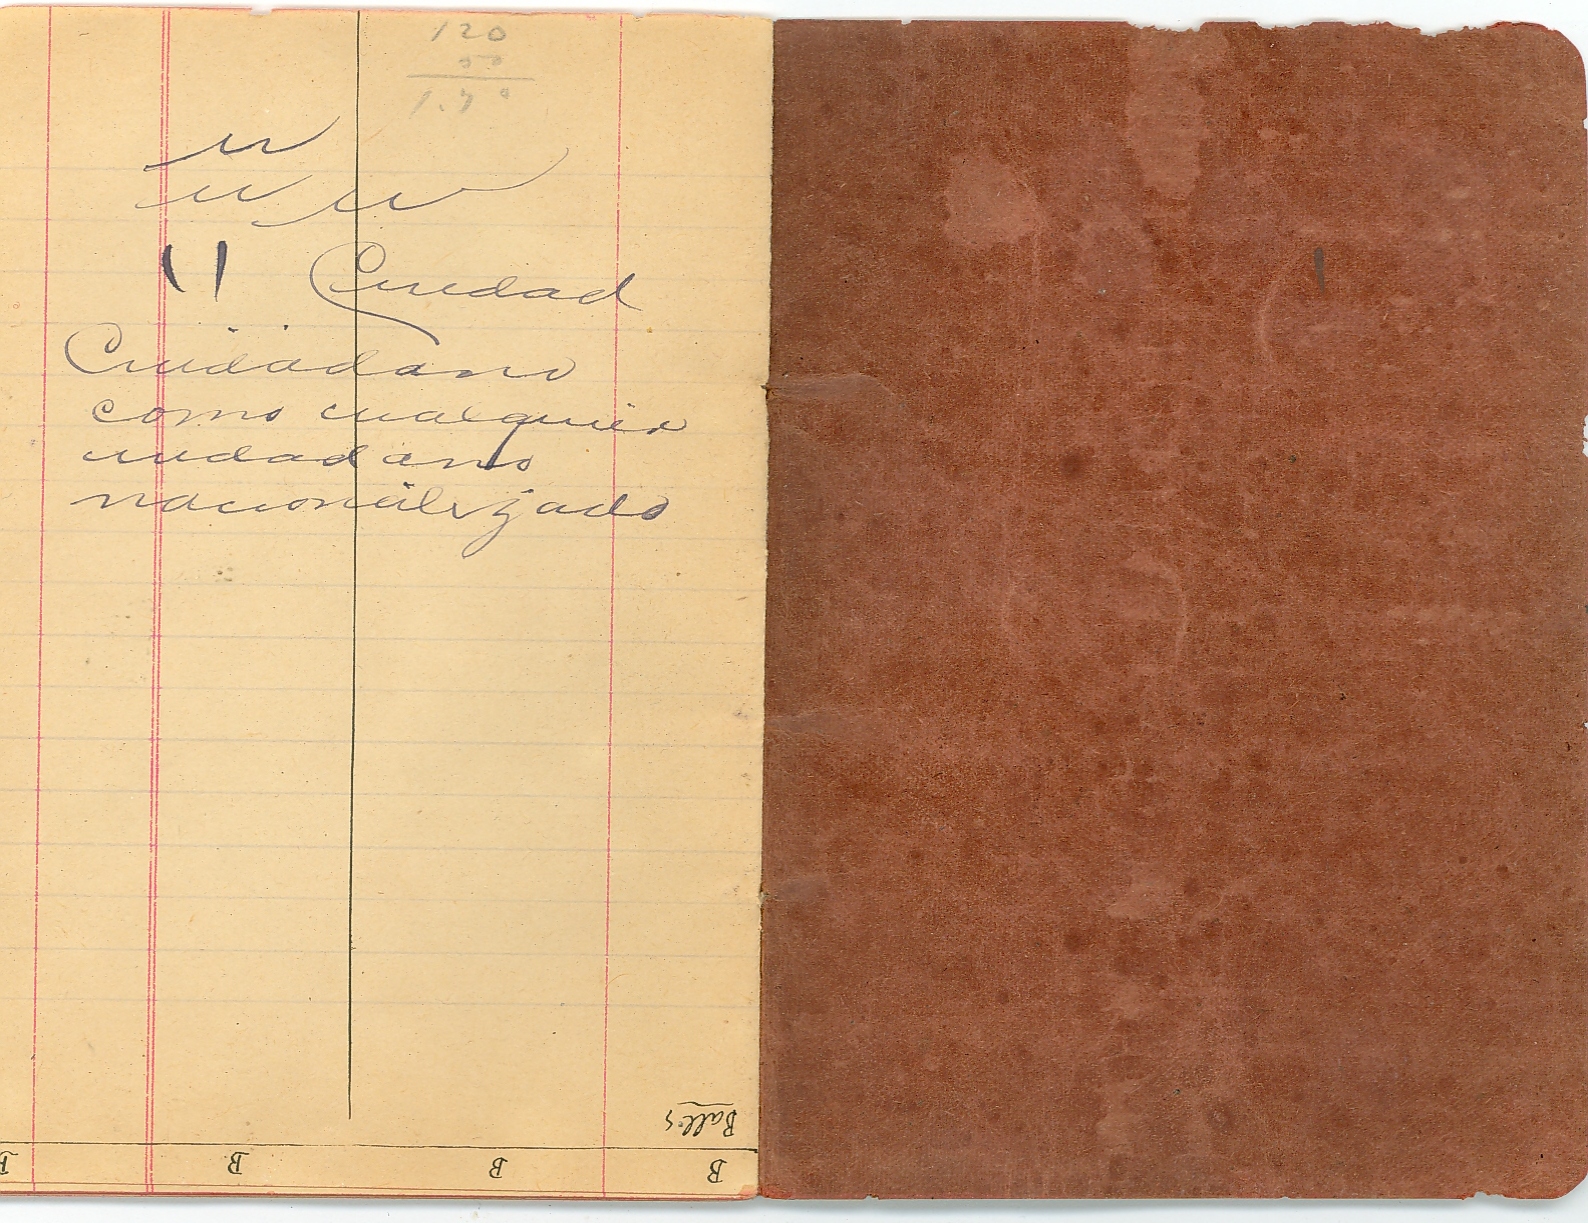 120
50
1.70
Ciudad
Ciudadano
como cualquier
ciudadano
nacionalizado
Balls
B B B B